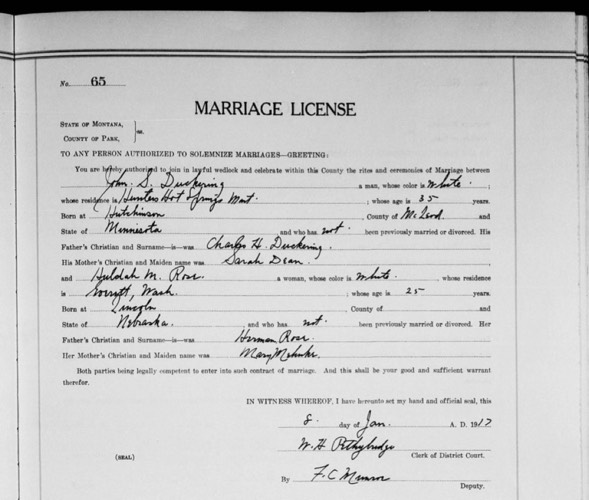 No. 65
MARRIAGE LICENSE
STATE OF MONTANA,
COUNTY OF PARK, } ss.
TO ANY PERSON AUTHORIZED TO SOLEMNIZE MARRIAGES—GREETING:
You are hereby authorized to join in lawful wedlock and celebrate within this County the rites and ceremonies of Marriage between
John S. Duckering a man, whose color is White
whose residence is Hunters Hot Springs Mont ; whose age is 35 years.
Born at Hutchinson , County of McLeod and
State of Minnesota and who has not been previously married or divorced. His
Father's Christian and Surname—is—was Charles H. Duckering
His Mother's Christian and Maiden name was Sarah Dean.
and Huldah M. Rose. a woman, whose color is White. whose residence
is Wash. ; whose age is 25 years.
Born at Lincoln , County of and
State of Nebraska. , and who has not. been previously married or divorced. Her
Father's Christian and Surname—is—was Herman Rose.
Her Mother's Christian and Maiden name was Mary
Both parties being legally competent to enter into such contract of marriage. And this shall be your good and sufficient warrant
therefor.
IN WITNESS WHEREOF, I have hereunto set my hand and official seal, this
8. day of Jan. A. D. 1917
W. H. Pethybridge
Clerk of District Court.
(SEAL)
By F. C. Munroe
Deputy.